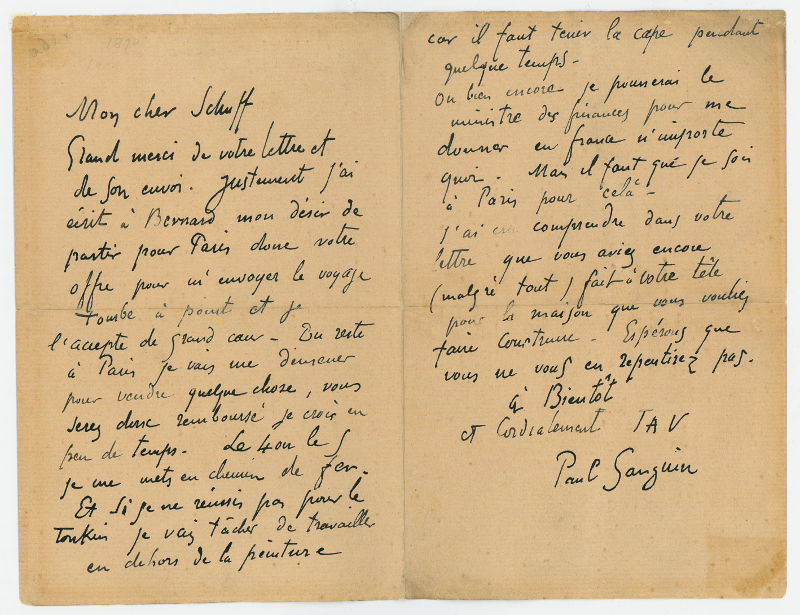 1890
Mon cher Schuff
Grand merci de votre lettre et
de son envoi. Justement j'ai
écrit à Bernard mon désir de
partir pour Paris donc votre
offre pour m'envoyer le voyage
tombe à point et je
l'accepte de Grand cœur - Du reste
à Paris je vais me demener
pour vendre quelque chose, vous
serez donc remboursé je crois en
peu de temps. Le 4 ou le 5
je me mets en chemin de fer.
Et si je ne réussis pas pour le
Tonkin je vais tâcher de travailler
en dehors de la peinture
car il faut tenir la cape pendant
quelque temps -
Ou bien encore je pousserai le
ministre des finances pour me
donner en france n'importe
quoi. Mais il faut que je sois
à Paris pour celà -
j'ai cru comprendre dans votre
lettre que vous aviez encore
(malgré tout) fait à votre tête
pour la maison que vous vouliez
faire construire. Espérons que
vous ne vous en repentirez pas.
à Bientôt
et Cordialement TAV
Paul Gauguin